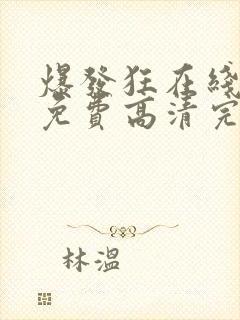 爆發狂在綫
免費高清完
林溫